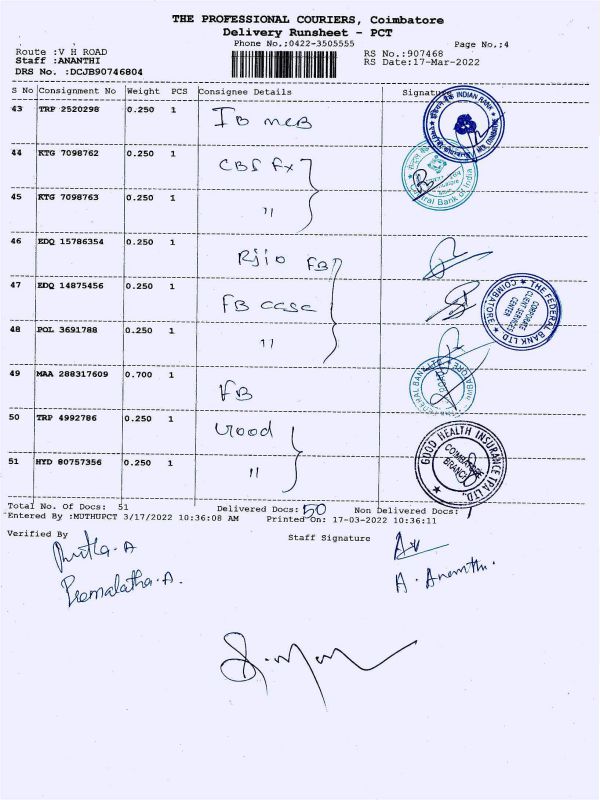 THE PROFESSIONAL COURIERS, Coimbatore
Delivery Runsheet - PCT
Phone No.:0422-3505555
Page No.;4
Route :V H ROAD
RS No.:907468
Staff :ANANTHI
RS Date:17-Mar-2022
DRS No. :DCJB90746804
S No Consignment No Weight PCS Consignee Details Signature
43 TRP 2520298 0.250 1 IB mcB
INDIAN BANK
44 KTG 7098762 0.250 1 CBS Fx
Central Bank of India
45 KTG 7098763 0.250 1 "
46 EDQ 15786354 0.250 1 Rjio FB
47 EDQ 14875456 0.250 1 FB case
THE FEDERAL BANK LTD
COIMBATORE
CORPORATE
CLIENT SERVICES
CENTER
48 POL 3691788 0.250 1 "
49 MAA 288317609 0.700 1 FB
50 TRP 4992786 0.250 1 Good
GOOD HEALTH INSURANCE TPA LTD.
COIMBATORE
BRANCH
51 HYD 80757356 0.250 1 "
Total No. Of Docs: 51 Delivered Docs: 50 Non Delivered Docs: 1
Entered By :MUTHUPCT 3/17/2022 10:36:08 AM Printed On: 17-03-2022 10:36:11
Verified By Staff Signature
Premalatha.A.
A. Ananthi.